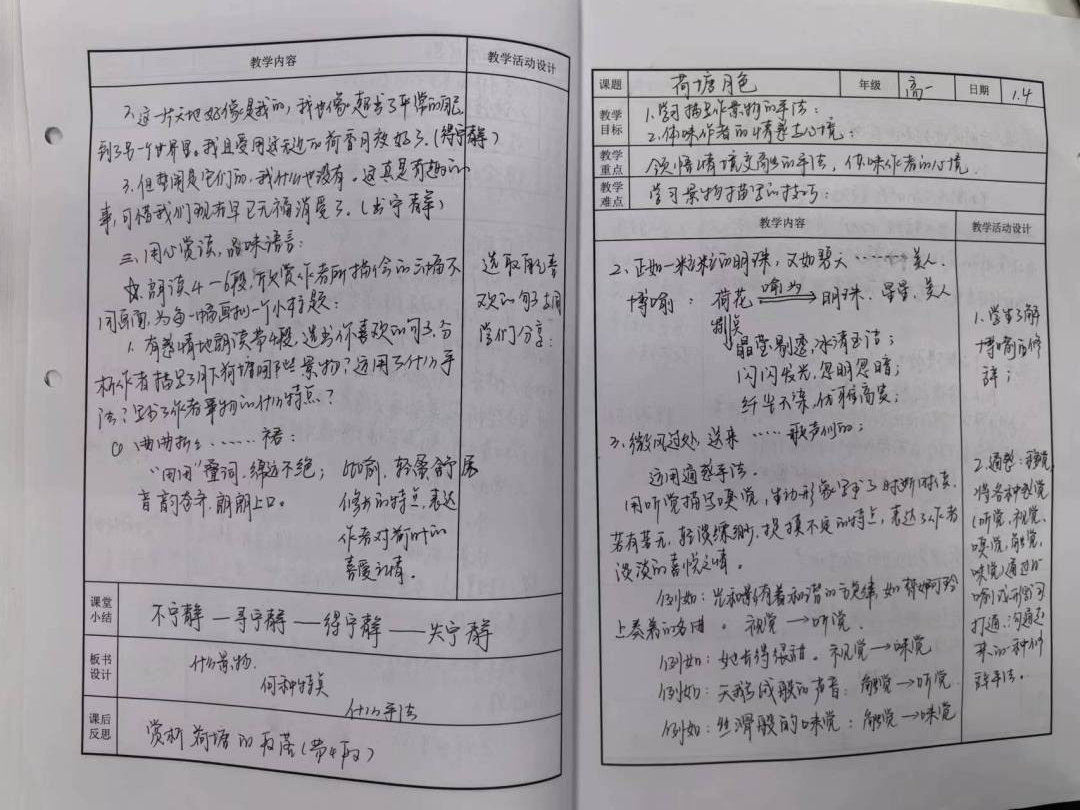 教学内容 教学活动设计
2.这一片天地好像是我的,我也像超出了平常的自己,
到了另一个世界里。我且受用这无边的荷香月色好了。(得宁静)
3.但热闹是它们的,我什么也没有。这真是有趣的
事,可惜我们现在早已无福消受了。(失宁静)
三、用心赏读,品味语言:
朗读4—6段,欣赏作者所描绘的三幅不
同画面,为每一幅画拟一个小标题:
1.有感情地朗读第4段,选出你喜欢的句子,分
析作者描写了月下荷塘哪些景物?运用了什么手
法?写出了作者景物的什么特点?
① 曲曲折折……裙:
“田田”叠词,绵远不绝;
音韵奇,朗朗上口。
比喻,轻盈舒展
修长的特点,表达
作者对荷叶的
喜爱之情。
选取自己喜
欢的句子与同
学们分享:
课堂小结 不宁静—寻宁静—得宁静—失宁静
板书设计 什么景物
何种特点
什么手法
课后反思 赏析荷塘的段落(第4段)
课题 荷塘月色 年级 高一 日期 1.4
教学目标 1.学习描写景物的手法;
2.体味作者的情感与心境;
教学重点 领悟情境交融的手法,体味作者的心境
教学难点 学习景物描写的技巧;
教学内容 教学活动设计
2.正如一粒粒的明珠,又如碧天……美人.
博喻:荷花 喻为 明珠、星星、美人
晶莹剔透,冰清玉洁;
闪闪发光,忽明忽暗;
纤尘不染,优雅高贵;
3.微风过处,送来……歌声似的;
运用通感手法.
用听觉描写嗅觉,生动形象写出了时断时续,
若有若无,轻淡缥缈,捉摸不定的特点,表达了作者
淡淡的喜悦之情。
例如:光和影有着和谐的旋律,如梵婀玲
上奏着的名曲。视觉→听觉.
例如:她长得很甜。视觉→味觉
例如:天鹅绒般的声音:触觉→听觉
例如:丝滑般的味觉:触觉→味觉
1.学生了解
博喻的修
辞;
2.通感:
将各种感觉
(听觉、视觉、
嗅觉、触觉、
味觉)通过比
喻或形容词
打通,沟通起
来的一种修
辞手法。